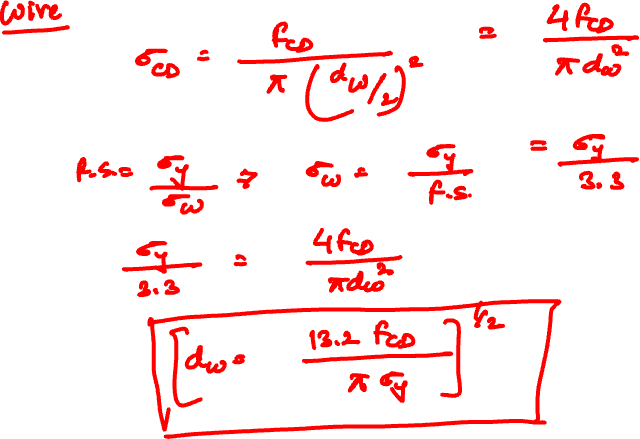 wire
σ_CD = f_CD / π (d_w/2)^2 = 4f_CD / π d_w^2
f.s. = σ_y / σ_w ⇒ σ_w = σ_y / f.s. = σ_y / 3.3
σ_y / 3.3 = 4f_CD / πd_w^2
[d_w = 13.2 f_CD / π σ_y]^1/2